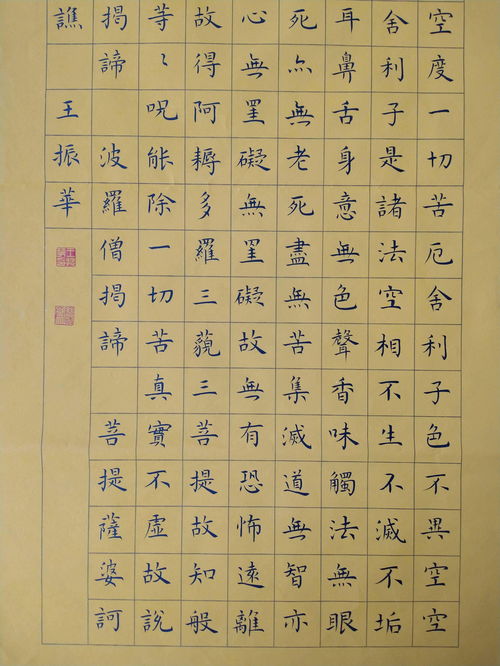 空度一切苦厄舍利子色不異空空
舍利子是諸法空相不生不滅不垢
耳鼻舌身意無色聲香味觸法無眼
死亦無老死盡無苦集滅道無智亦
心無罣礙無罣礙故無有恐怖遠離
故得阿耨多羅三藐三菩提故知般
等〻呪能除一切苦真實不虛故說
揭諦 波羅僧揭諦 菩提薩婆訶
譙 王振華